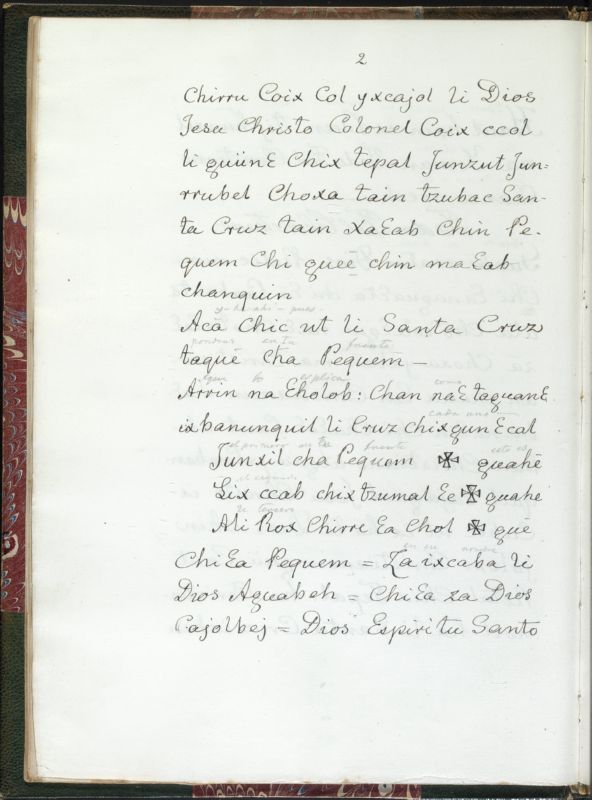 2
Chirru Coix Col yxcajol li Dios
Jesu Christo Colonel Coix ccol
li quiinƐ Chix tepal Junzut Jun=
rrubel Choxa tain tzubac San-
ta Cruz tain xaƐab Chin Pe-
quem Chi queē chin maƐab
chanquin
y-
Aca chic ut li Santa Cruz
pondras en tu frente
taquē cha Pequem̄ —
Aqui lo explica como
Arrin na Ɛholob: Chan naƐ taquanƐ
cada uno
ix banunquil li Cruz chixqunƐcal
el primero en tu frente esto es
Junxil cha Pequem ✠ quahē
el segundo
Lix ccab chix tzumal Ɛe ✠ quahe
el tercero
Ali Rox Chirre Ɛa Chol ✠ quē
en su nombre
ChiƐa Pequem = Za ixcaba li
Dios Aguabeh = ChiƐa za Dios
Cajolbej = Dios Espiritu Santo